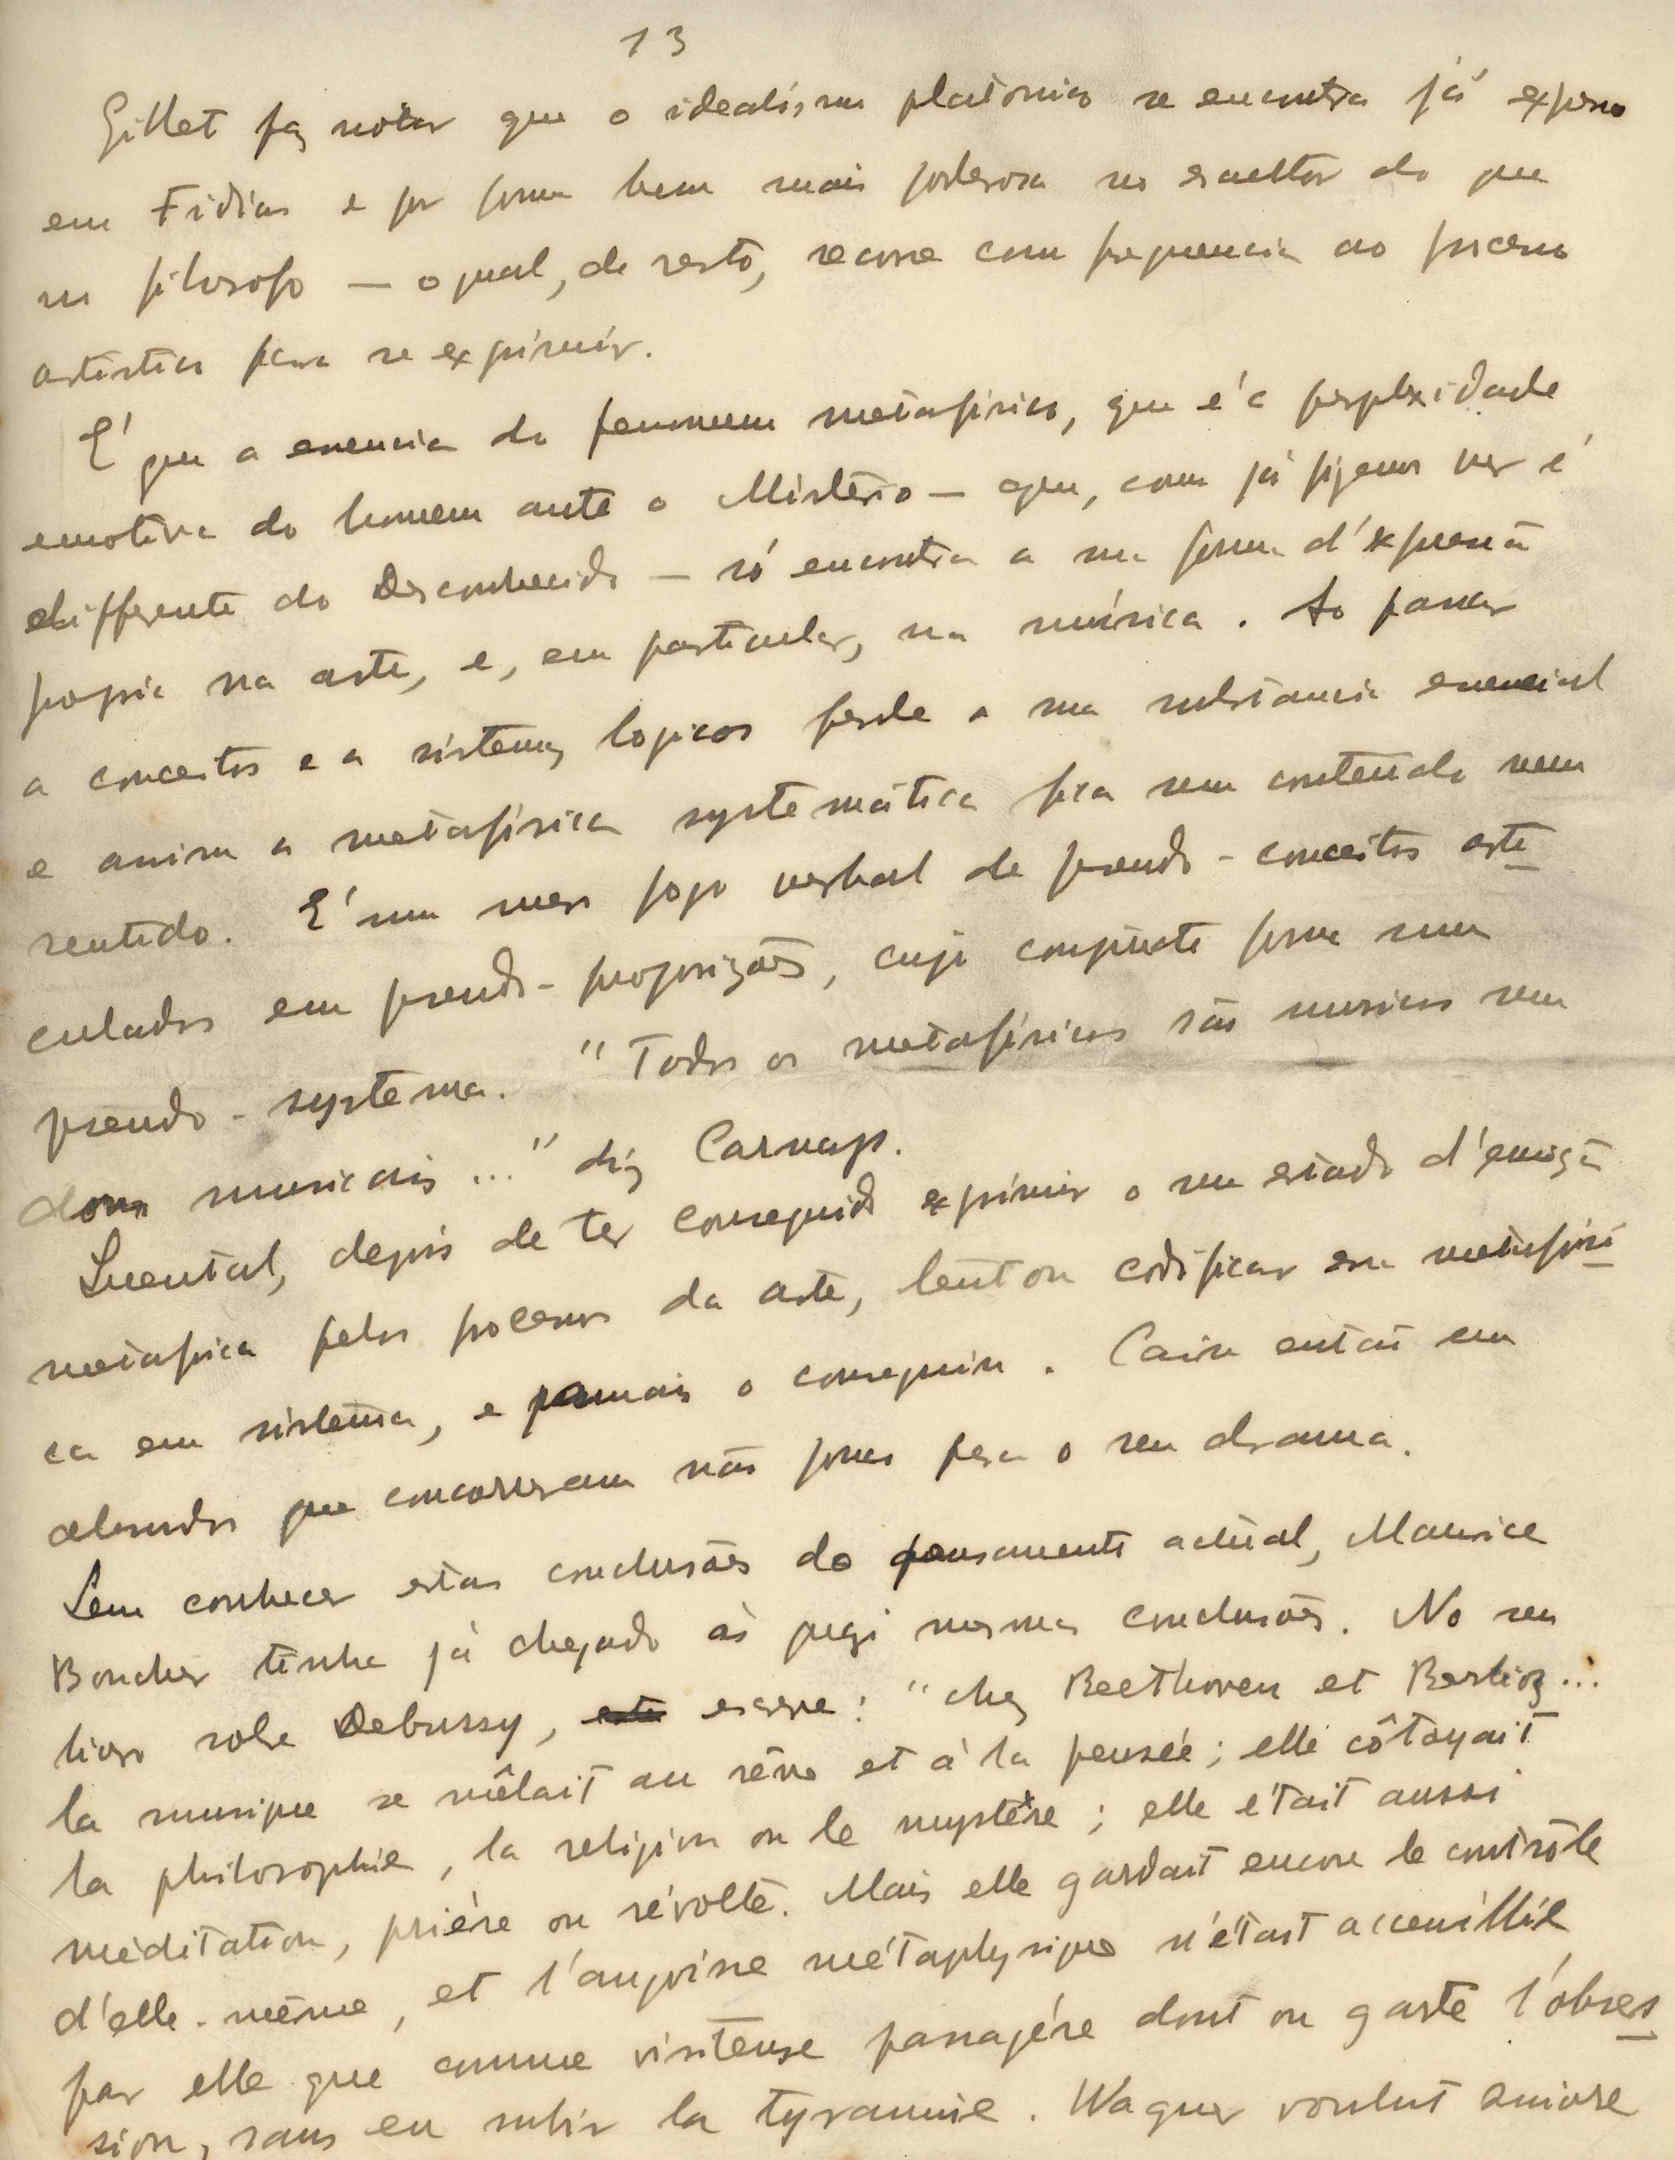 13
Gillet faz notar que o idealismo platonico se encontra já expresso
em Fidias e por forma bem mais poderosa no escultor do que
no filosofo — o qual, de resto, recorre com frequencia ao processo
artistico para se exprimir.
E' que a essencia do fenomeno metafisico, que é a perplexidade
emotiva do homem ante o Mistério — que, como já fizemos ver é
differente do Desconhecido — só encontra a sua forma d'expressão
propria na arte, e, em particular, na música. Ao passar
a conceitos e a sistemas logicos perde a sua substancia essencial
e assim a metafisica systemática fica sem conteúdo nem
sentido. E' um mero jogo verbal de pseudo-conceitos arti-
culados em pseudo-proposições, cujo conjuncto forma um
pseudo-systema. "Todos os metafisicos são musicos sem
dons musicais..." diz Carnap.
Quental, depois de ter conseguido exprimir o seu estado d'emoção
metafisica pelos processos da arte, tentou codificar essa metafisi-
ca em sistema, e jamais o conseguiu. Caiu então em
absurdos que concorreram não pouco para o seu drama.
Sem conhecer estas conclusões do pensamento actual, Maurice
Boucher tinha já chegado às quasi mesmas conclusões. No seu
livro sobre Debussy, escreve: "chez Beethoven et Berlioz...
la musique se mêlait au rêve et à la pensée; elle côtoyait
la philosophie, la religion ou le mystère; elle était aussi
méditation, prière ou révolte. Mais elle gardait encore le contrôle
d'elle-même, et l'angoisse métaphysique n'était accueillie
par elle que comme visiteuse passagère dont on garde l'obses-
sion, sans en subir la tyrannie. Wagner voulut suivre